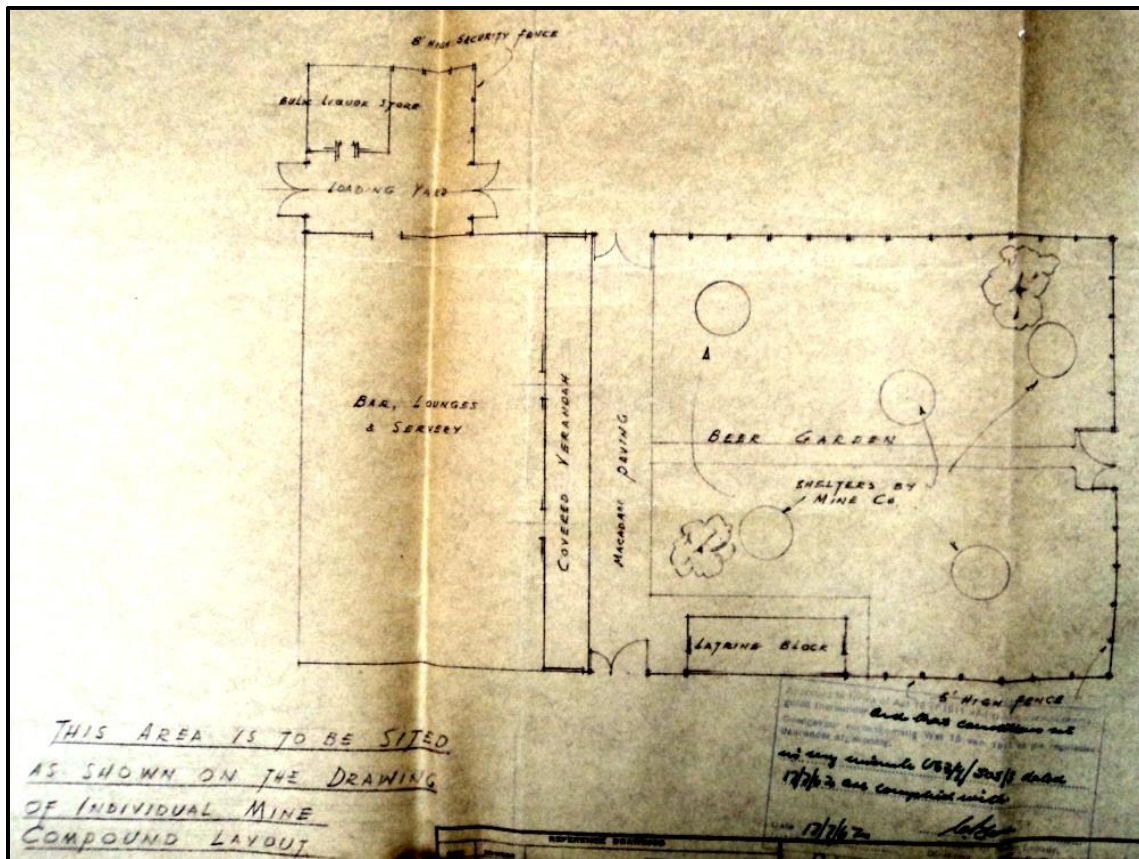 8' HIGH SECURITY FENCE
BULK LIQUOR STORE
LOADING YARD
BAR, LOUNGES
& SERVERY
COVERED VERANDAH
MACADAM PAVING
BEER GARDEN
SHELTERS BY
MINE CO.
LATRINE BLOCK
6' HIGH FENCE
THIS AREA IS TO BE SITED
AS SHOWN ON THE DRAWING
OF INDIVIDUAL MINE
COMPOUND LAYOUT
and that conditions set
in my minute
dated
17/7/62 are complied with
17/7/62
REFERENCE DRAWINGS